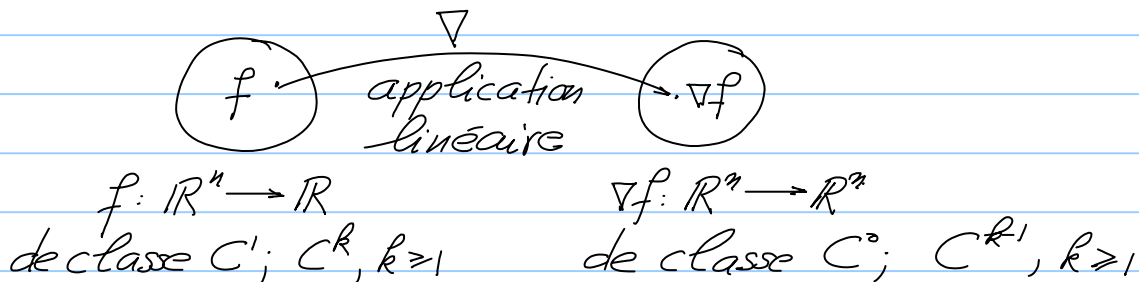 ∇
f · application · ∇f
linéaire
f: ℝⁿ → ℝ ∇f: ℝⁿ → ℝⁿ
de classe C¹; Cᵏ, k ≥ 1 de classe C⁰; Cᵏ⁻¹, k ≥ 1